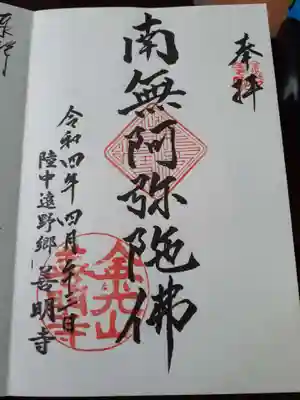 奉拝
南無阿弥陀佛
令和四年四月 日
陸中遠野郷 善明寺
金光山
善明寺